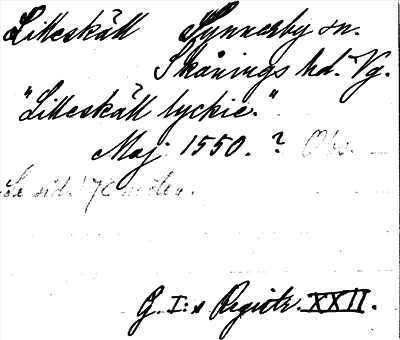 Litteskätt Synnerby sn.
Skånings hd. Vg.
"Litteskätt lyckie."
Maj 1550. ? Obs.
Se sid.
G. I:s Registr. XXII.